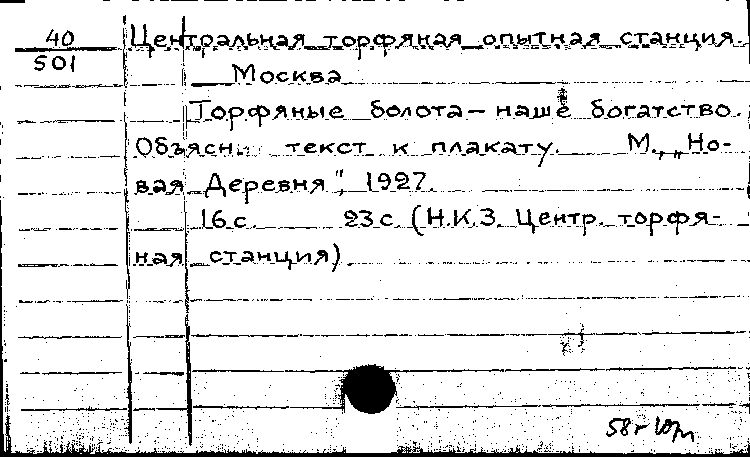 40
501
Центральная торфяная опытная станция.
Москва
Торфяные болота – наше богатство.
Объясн. текст к плакату. М., „Но-
вая Деревня", 1927.
16 с. 23 с (Н.К.З. Центр. торфя-
ная станция).